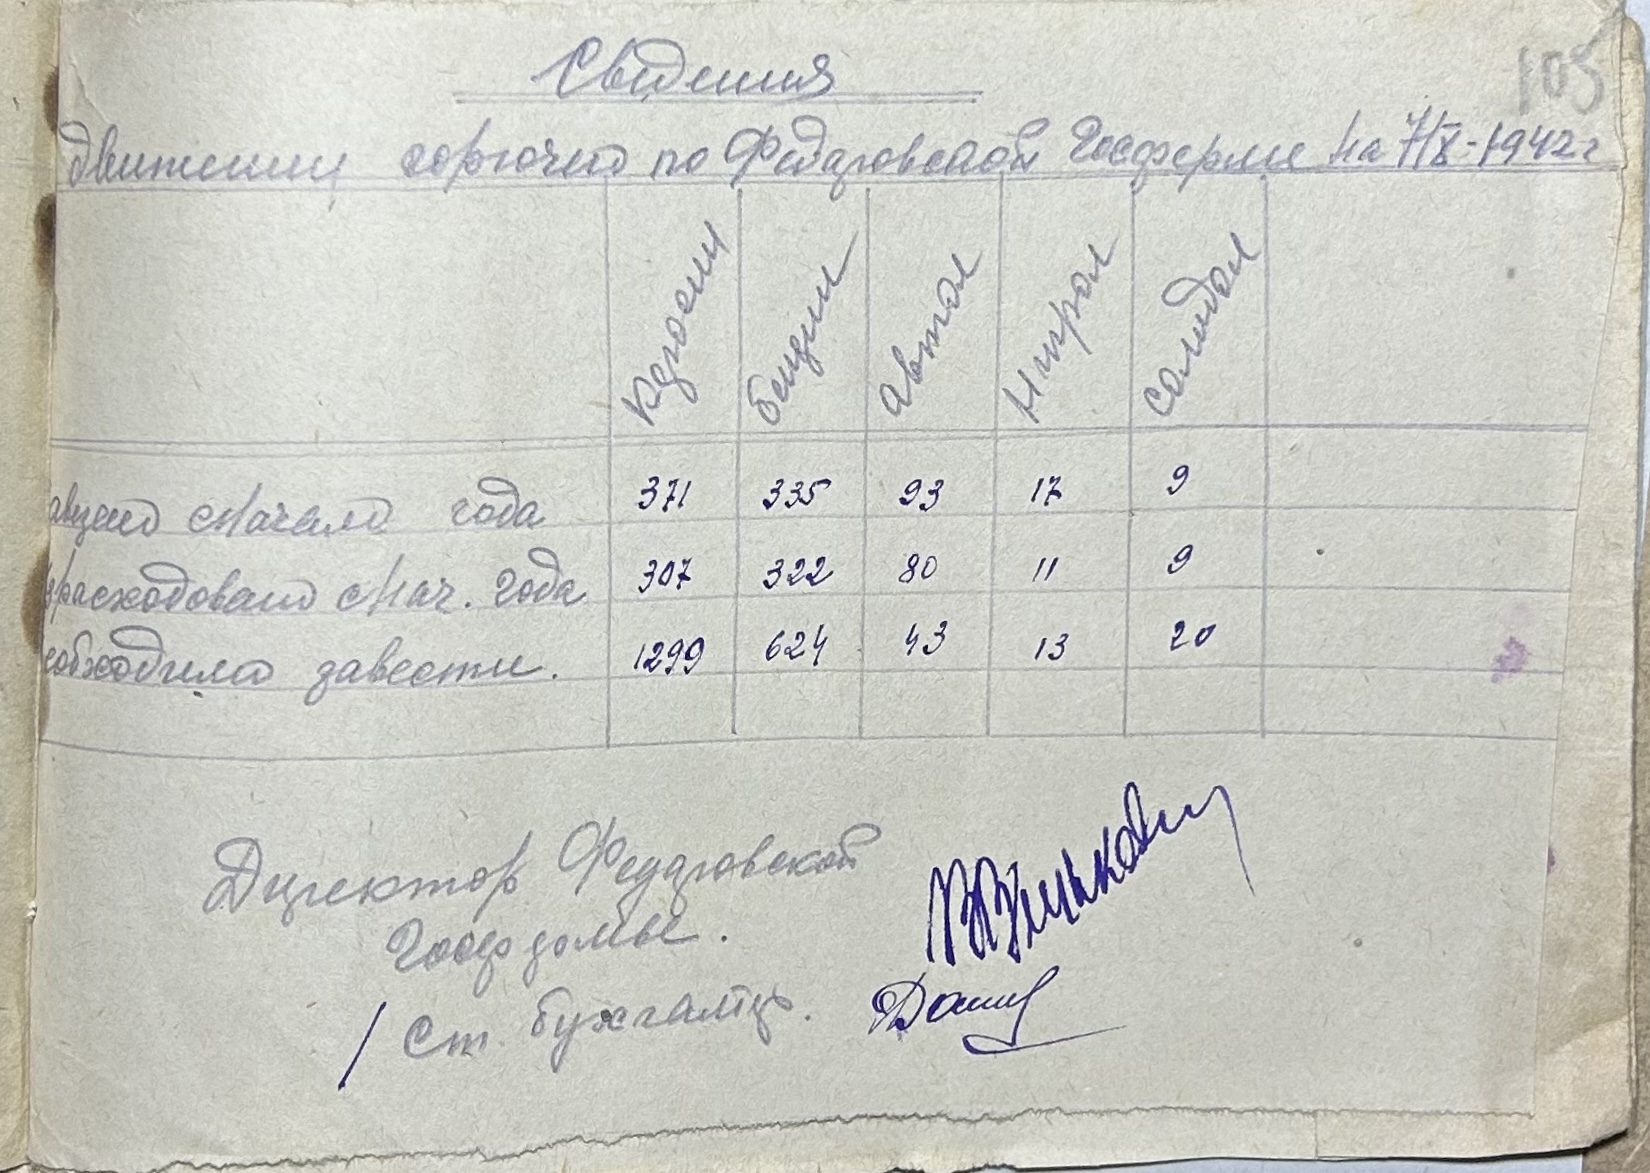 105
Сведения
движении горючего по Федаровской Госферме на 7/IX-1942 г
Кдросин бензин автол нигрол солидол
авезено с начала года 371 335 93 17 9
зрасходовано с нач. года 307 322 80 11 9
еобходимо завести. 1299 624 43 13 20
Директор Федаровской
Госф
/ Ст. бухгалтер.